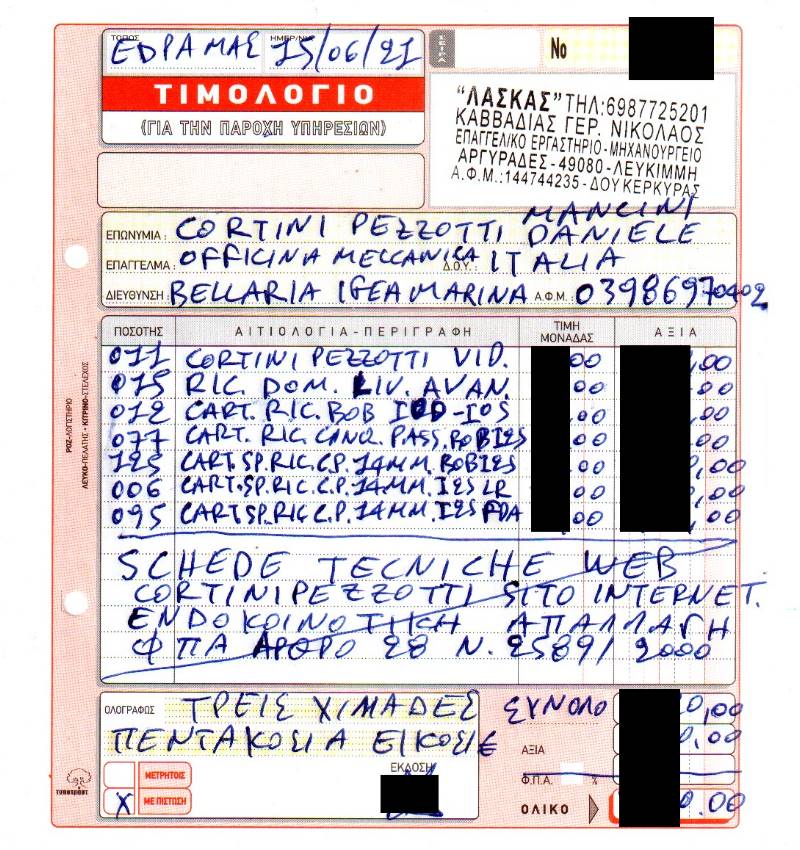 ΤΟΠΟΣ ΕΔΡΑ ΜΑΣ ΗΜΕΡ/ΝΙΑ 15/06/21
ΣΕΙΡΑ No
ΤΙΜΟΛΟΓΙΟ
(ΓΙΑ ΤΗΝ ΠΑΡΟΧΗ ΥΠΗΡΕΣΙΩΝ)
"ΛΑΣΚΑΣ" ΤΗΛ:6987725201
ΚΑΒΒΑΔΙΑΣ ΓΕΡ. ΝΙΚΟΛΑΟΣ
ΕΠΑΓΓΕΛ/ΚΟ ΕΡΓΑΣΤΗΡΙΟ - ΜΗΧΑΝΟΥΡΓΕΙΟ
ΑΡΓΥΡΑΔΕΣ - 49080 - ΛΕΥΚΙΜΜΗ
Α.Φ.Μ.:144744235 - ΔΟΥ ΚΕΡΚΥΡΑΣ
MANCINI
ΕΠΩΝΥΜΙΑ : CORTINI PEZZOTTI DANIELE
ΕΠΑΓΓΕΛΜΑ : OFFICINA MECCANICA Δ.Ο.Υ.: ITALIA
ΔΙΕΥΘΥΝΣΗ : BELLARIA IGEA MARINA Α.Φ.Μ.: 03986970402
ΠΟΣΟΤΗΣ ΑΙΤΙΟΛΟΓΙΑ - ΠΕΡΙΓΡΑΦΗ ΤΙΜΗ ΜΟΝΑΔΑΣ ΑΞΙΑ
011 CORTINI PEZZOTTI VID. 00 ,00
015 RIC. DOM. LIV. AVAN. 00 ,00
012 CART. RIC. BOB IOD-IOS .00 ,00
077 CART. RIC. CANQ. PASS. BOBIES .00 ,00
125 CART. SP. RIC. C.P. 14MM. BOBIES .00 ,00
006 CART. SP. RIC. C.P. 14MM. IES LR 00 ,00
095 CART SP. RIC. C.P. 14MM. IES FDA 00 ,00
SCHEDE TECNICHE WEB
CORTINI PEZZOTTI SITO INTERNET.
ΕΝΔΟΚΟΙΝΟΤΙΚΗ ΑΠΑΛΛΑΓΗ
ΦΠΑ ΑΡΘΡΟ 28 Ν. 2589/2000
ΡΟΖ-ΛΟΓΙΣΤΗΡΙΟ
ΛΕΥΚΟ-ΠΕΛΑΤΗΣ - ΚΙΤΡΙΝΟ-ΣΤΕΛΕΧΟΣ
ΟΛΟΓΡΑΦΩΣ ΤΡΕΙΣ ΧΙΜΑΔΕΣ ΣΥΝΟΛΟ 0,00
ΠΕΝΤΑΚΟΣΙΑ ΕΙΚΟΣΙ € ΑΞΙΑ 0,00
ΕΚΔΟΣΗ
ΜΕΤΡΗΤΟΙΣ Φ.Π.Α. %
X ΜΕ ΠΙΣΤΩΣΗ ΟΛΙΚΟ 0.00
τυποτράστ